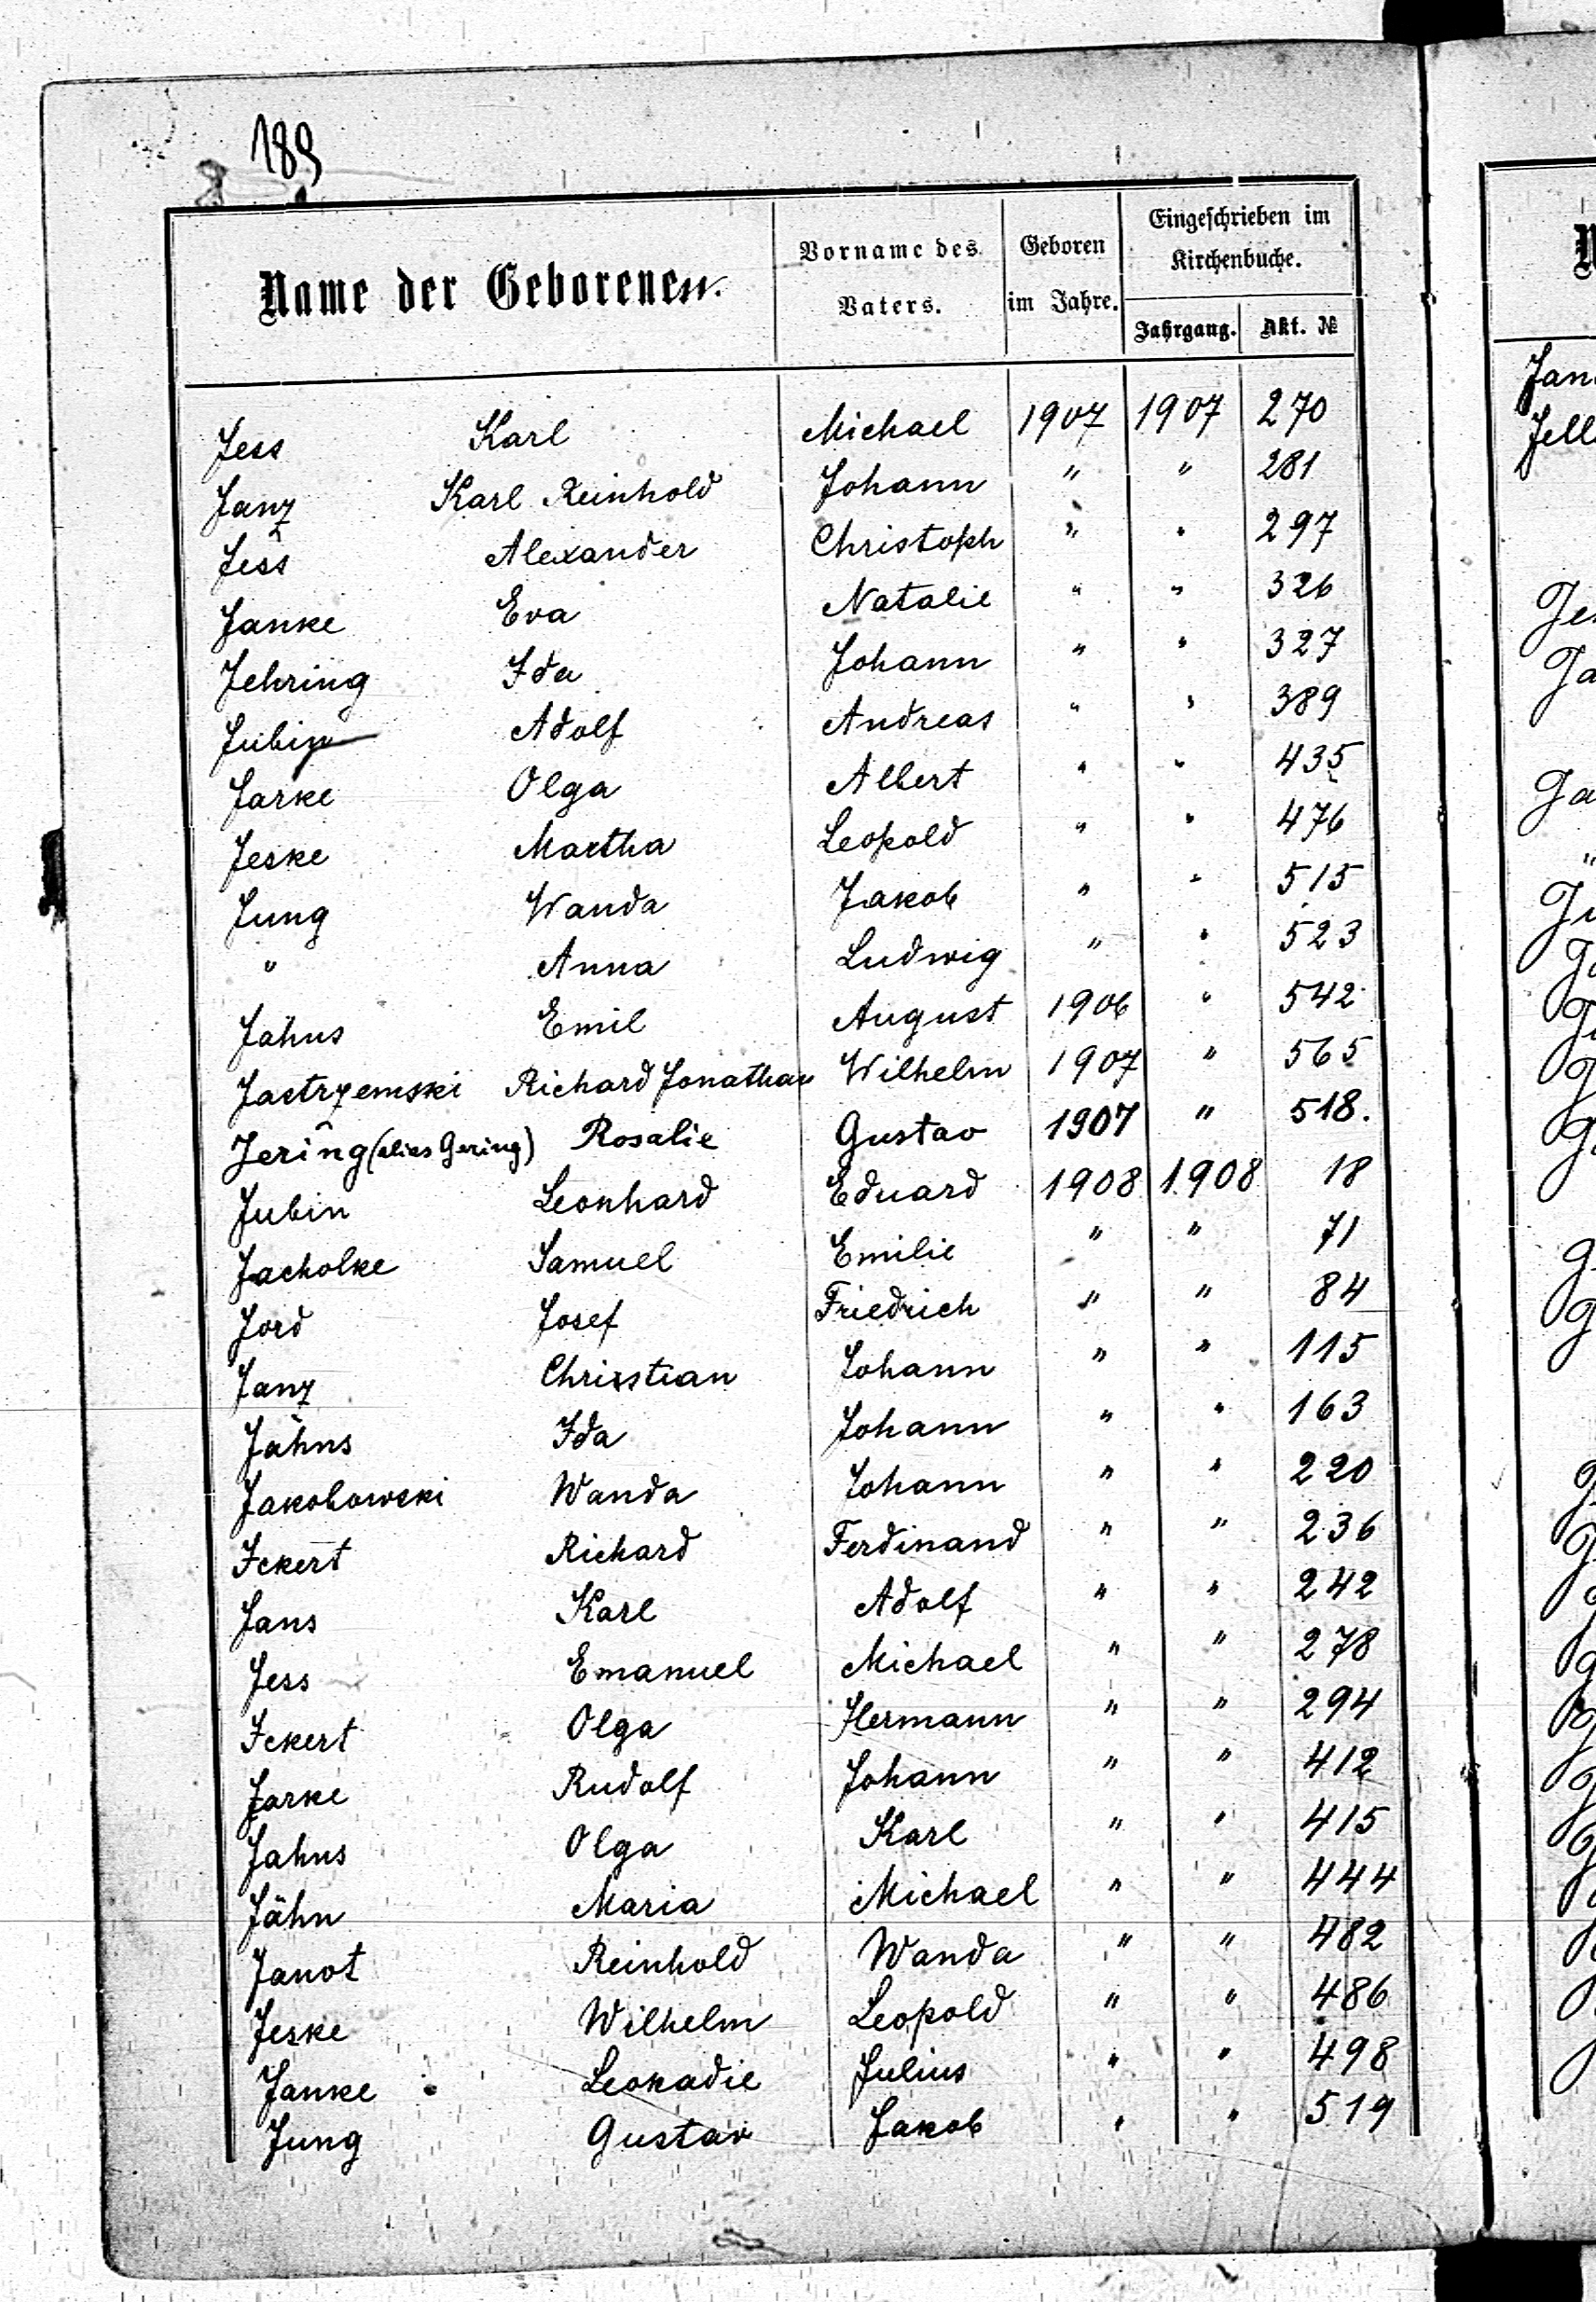 189
Name der Geborenen. Vorname des Vaters. Geboren im Jahre. Eingeschrieben im Kirchenbuche.
Jahrgang. Akt. №
Jess Karl Michael 1907 1907 270
Janz Karl Reinhold Johann " " 281
Jess Alexander Christoph " " 297
Janke Eva Natalie " " 326
Jehring Ida Johann " " 327
Jubin Adolf Andreas " " 389
Jarke Olga Albert " " 435
Jeske Martha Leopold " " 476
Jung Wanda Jakob " " 515
" Anna Ludwig " " 523
Jähns Emil August 1906 " 542
Jastrzemski Richard Jonathan Wilhelm 1907 " 565
Jering (alias Gering) Rosalie Gustav 1907 " 518.
Jubin Leonhard Eduard 1908 1908 18
Jacholke Samuel Emilie " " 71
Jord Josef Friedrich " " 84
Janz Christian Johann " " 115
Jähns Ida Johann " " 163
Jakobowski Wanda Johann " " 220
Ickert Richard Ferdinand " " 236
Jans Karl Adolf " " 242
Jess Emanuel Michael " " 278
Ickert Olga Hermann " " 294
Jarke Rudolf Johann " " 412
Jahns Olga Karl " " 415
Jähn Maria Michael " " 444
Janot Reinhold Wanda " " 482
Jeske Wilhelm Leopold " " 486
Janke Leokadie Julius " " 498
Jung Gustav Jakob " " 519